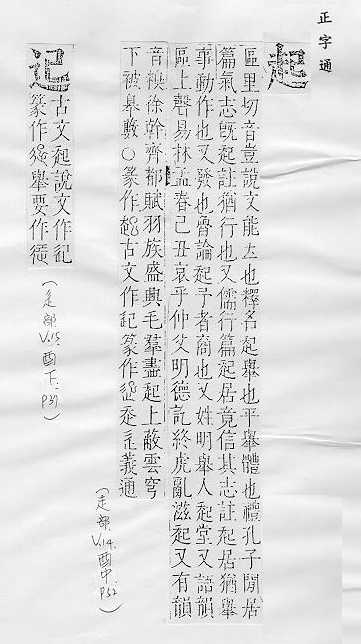 正字通
起
區里切音豈說文能立也釋名起舉也平舉體也禮孔子閒居
篇氣志既起註猶行也又儒行篇起居竟信其志註起居猶舉
事動作也又發也魯論起予者商也又姓明舉人起堂又語韻
區上聲易林孟春己丑哀乎仲父明德訖終虎亂滋起又有韻
音 徐幹齊都賦羽族盛興毛羣盡起上蔽雲穹
下被皋藪○篆作 古文作 篆作 義通
古文起說文作
篆作 舉要作
(走部 V.14. 酉中 P52.)
(辵部 V.15. 酉下. P31.)